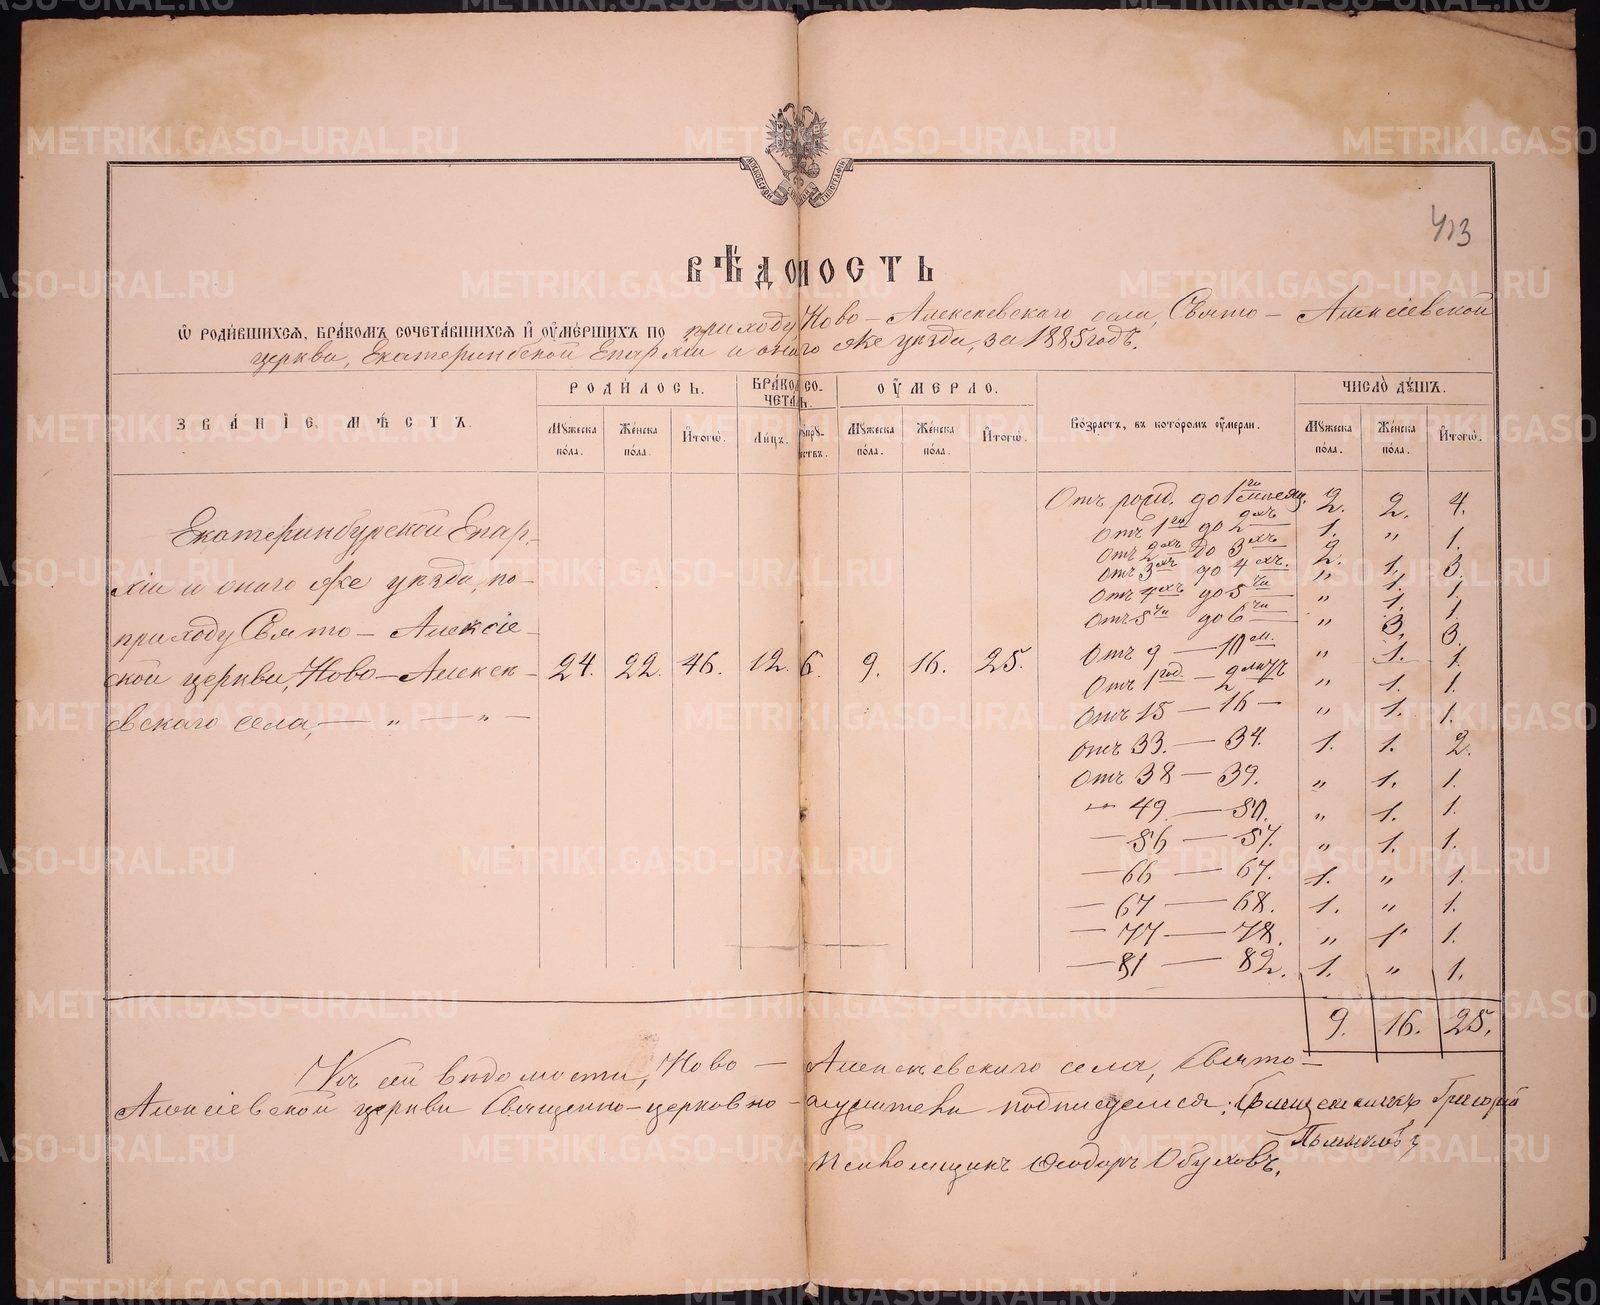 413
МОСКОВСКОЙ СѴНОДАЛЬН ТИПОГРАФІИ
ВѢДОМОСТЬ
Ѡ РОДИВШИХСЯ, БРАКОМЪ СОЧЕТАВШИХСЯ И ОУМЕРШИХЪ ПО приходу Ново-Алексѣевскаго села, Свято-Алексіевской
церкви, Екатеринбской Епархіи и онаго же уѣзда, за 1885 годъ.
ЗВАНІЕ МѢСТЪ. РОДИЛОСЬ. БРАКОМ СОЧЕТАЛ. ОУМЕРЛО. ЧИСЛО ДУШЪ.
Мужеска пола. Женска пола. Итогѡ. Лицъ. Супружествъ. Мужеска пола. Женска пола. Итогѡ. Возрастъ, въ которомъ оумерли. Мужеска пола. Женска пола. Итогѡ.
Екатеринбургской Епар-
хіи и онаго же уѣзда, по
приходу Свято-Алексіе-
ской церкви, Ново-Алексѣ- 24. 22. 46. 12. 6. 9. 16. 25.
евскаго села, — „ — „ —
Отъ рожд. до 1го мѣсяц. 2. 2. 4.
Отъ 1го до 2хъ 1. „ 1.
Отъ 2хъ до 3хъ 2. 1. 3.
Отъ 3хъ до 4хъ. „ 1. 1.
Отъ 4хъ до 5ти „ 1. 1.
Отъ 5ти до 6ти „ 3. 3.
Отъ 9 — 10 м. „ 1. 1.
Отъ 1 год. — 2 „ 1. 1.
Отъ 15 — 16 — „ 1. 1.
Отъ 33. — 34. 1. 1. 2.
Отъ 38 — 39. „ 1. 1.
— 49. — 50. „ 1. 1.
— 56 — 57. „ 1. 1.
— 66 — 67. 1. „ 1.
— 67 — 68. 1. „ 1.
— 77 — 78. „ 1. 1.
— 81 — 82. 1. „ 1.
9. 16. 25.
Къ сей вѣдомости, Ново-Алексѣевскаго села, Свято-
Алексіевской церкви Священно-церковно-служители подписуемся: Священникъ Григорій
Псаломщикъ Ѳеодоръ Обуховъ.
METRIKI.GASO-URAL.RU